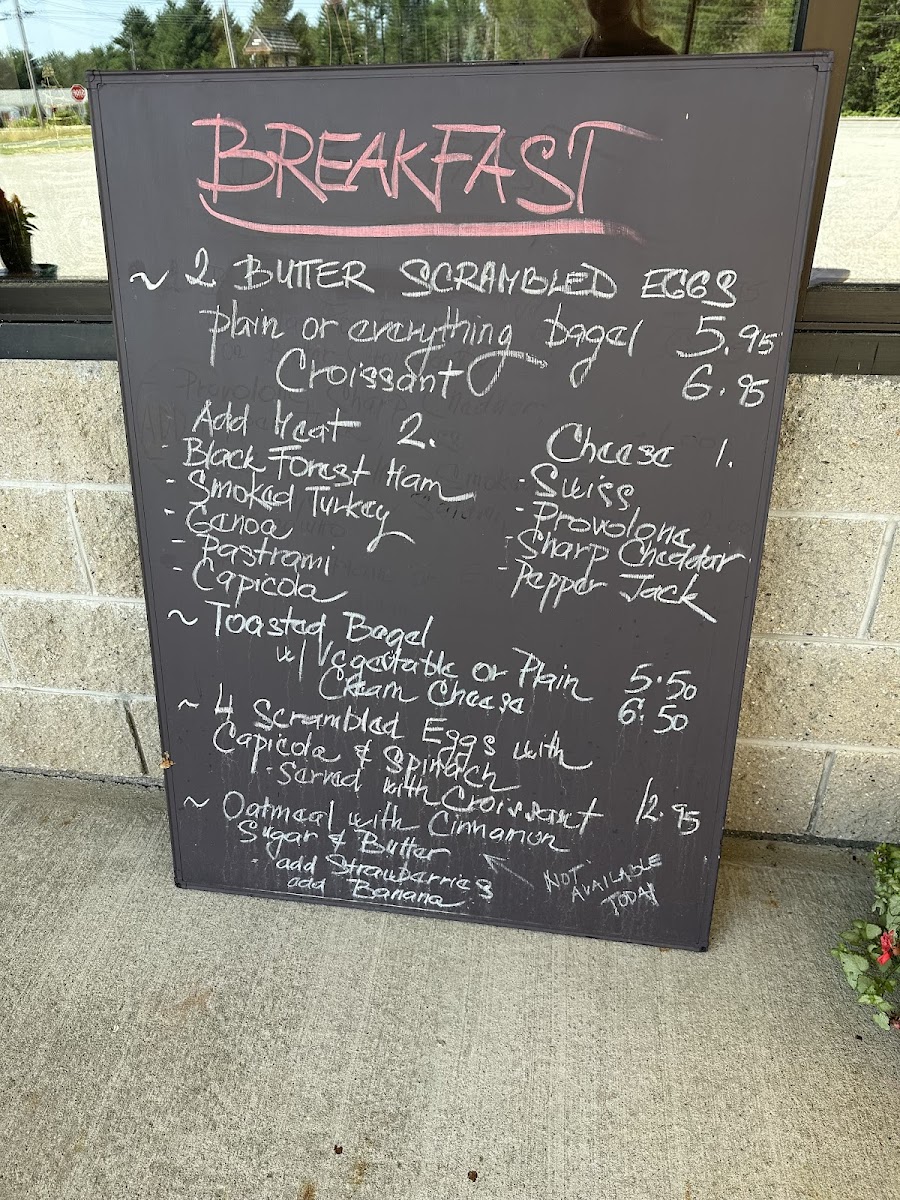 BREAKFAST
~ 2 BUTTER SCRAMBLED EGGS
plain or everything bagel 5.95
Croissant 6.95
Add Meat 2. Cheese 1.
- Black Forest Ham - Swiss
- Smoked Turkey - Provolone
- Genoa - Sharp Cheddar
- Pastrami - Pepper Jack
- Capicola
~ Toasted Bagel
w/ Vegetable or Plain 5.50
Cream Cheese 6.50
~ 4 Scrambled Eggs with
Capicola & Spinach
- Served with Croissant 12.95
~ Oatmeal with Cinnamon
Sugar & Butter
- add Strawberries
add Banana
NOT AVAILABLE TODAY